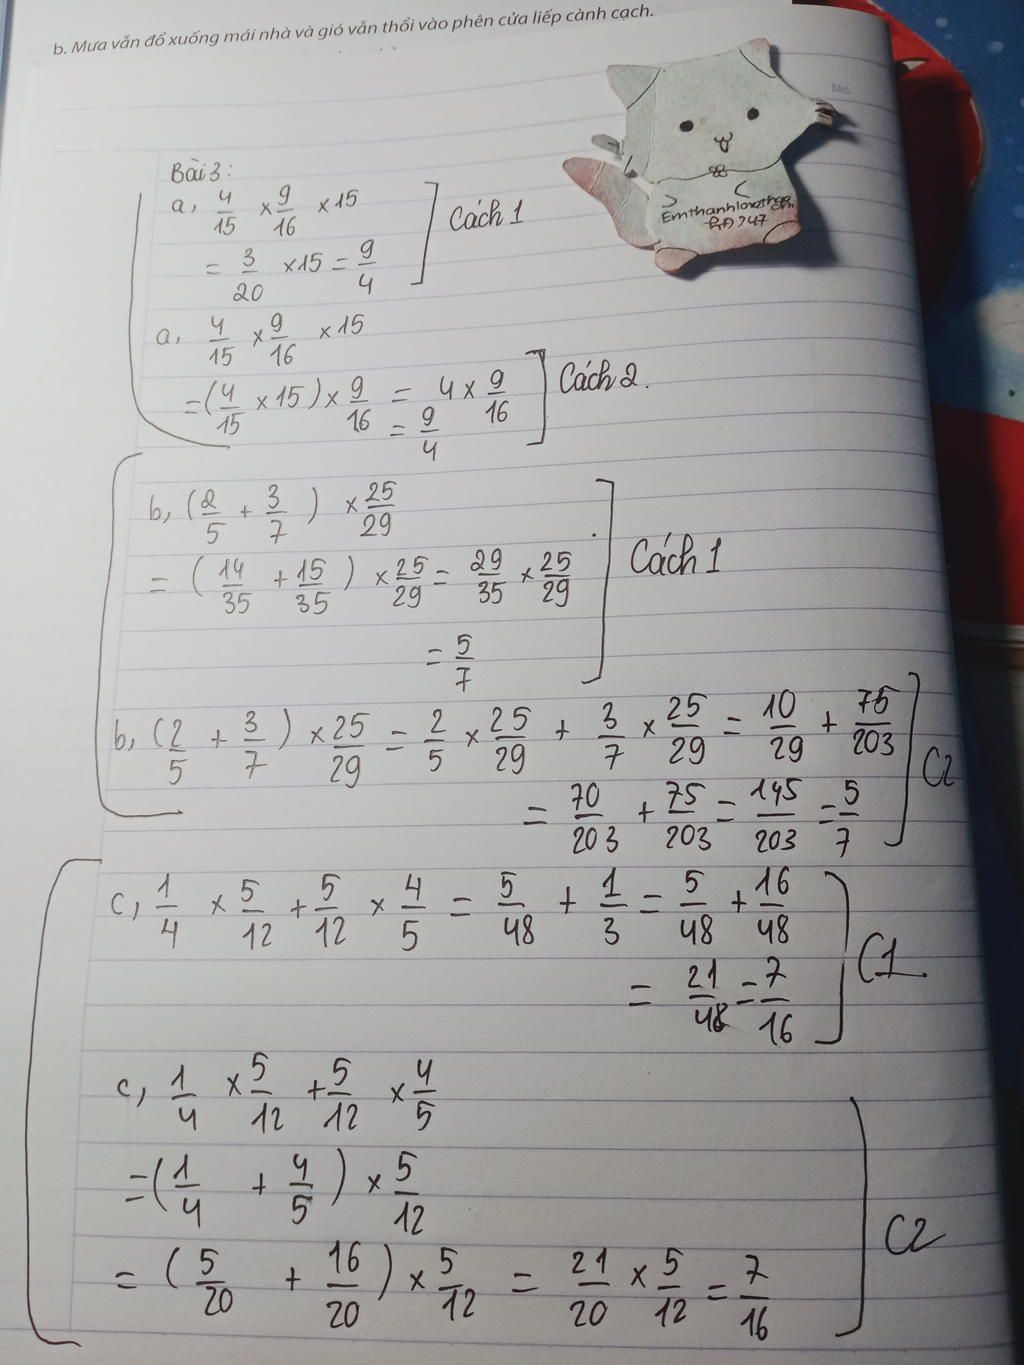 b. Mưa vẫn đổ xuống mái nhà và gió vẫn thổi vào phên cửa liếp cành cạch.
No.
Bài 3:
a, 4/15 × 9/16 × 15
= 3/20 × 15 = 9/4
Cách 1
a, 4/15 × 9/16 × 15
= (4/15 × 15) × 9/16 = 4 × 9/16
= 9/4
Cách 2.
b, (2/5 + 3/7) × 25/29
= (14/35 + 15/35) × 25/29 = 29/35 × 25/29
= 5/7
Cách 1
b, (2/5 + 3/7) × 25/29 = 2/5 × 25/29 + 3/7 × 25/29 = 10/29 + 75/203
= 70/203 + 75/203 = 145/203 = 5/7
C2
c, 1/4 × 5/12 + 5/12 × 4/5 = 5/48 + 1/3 = 5/48 + 16/48
= 21/48 = 7/16
C1
c, 1/4 × 5/12 + 5/12 × 4/5
= (1/4 + 4/5) × 5/12
= (5/20 + 16/20) × 5/12 = 21/20 × 5/12 = 7/16
C2